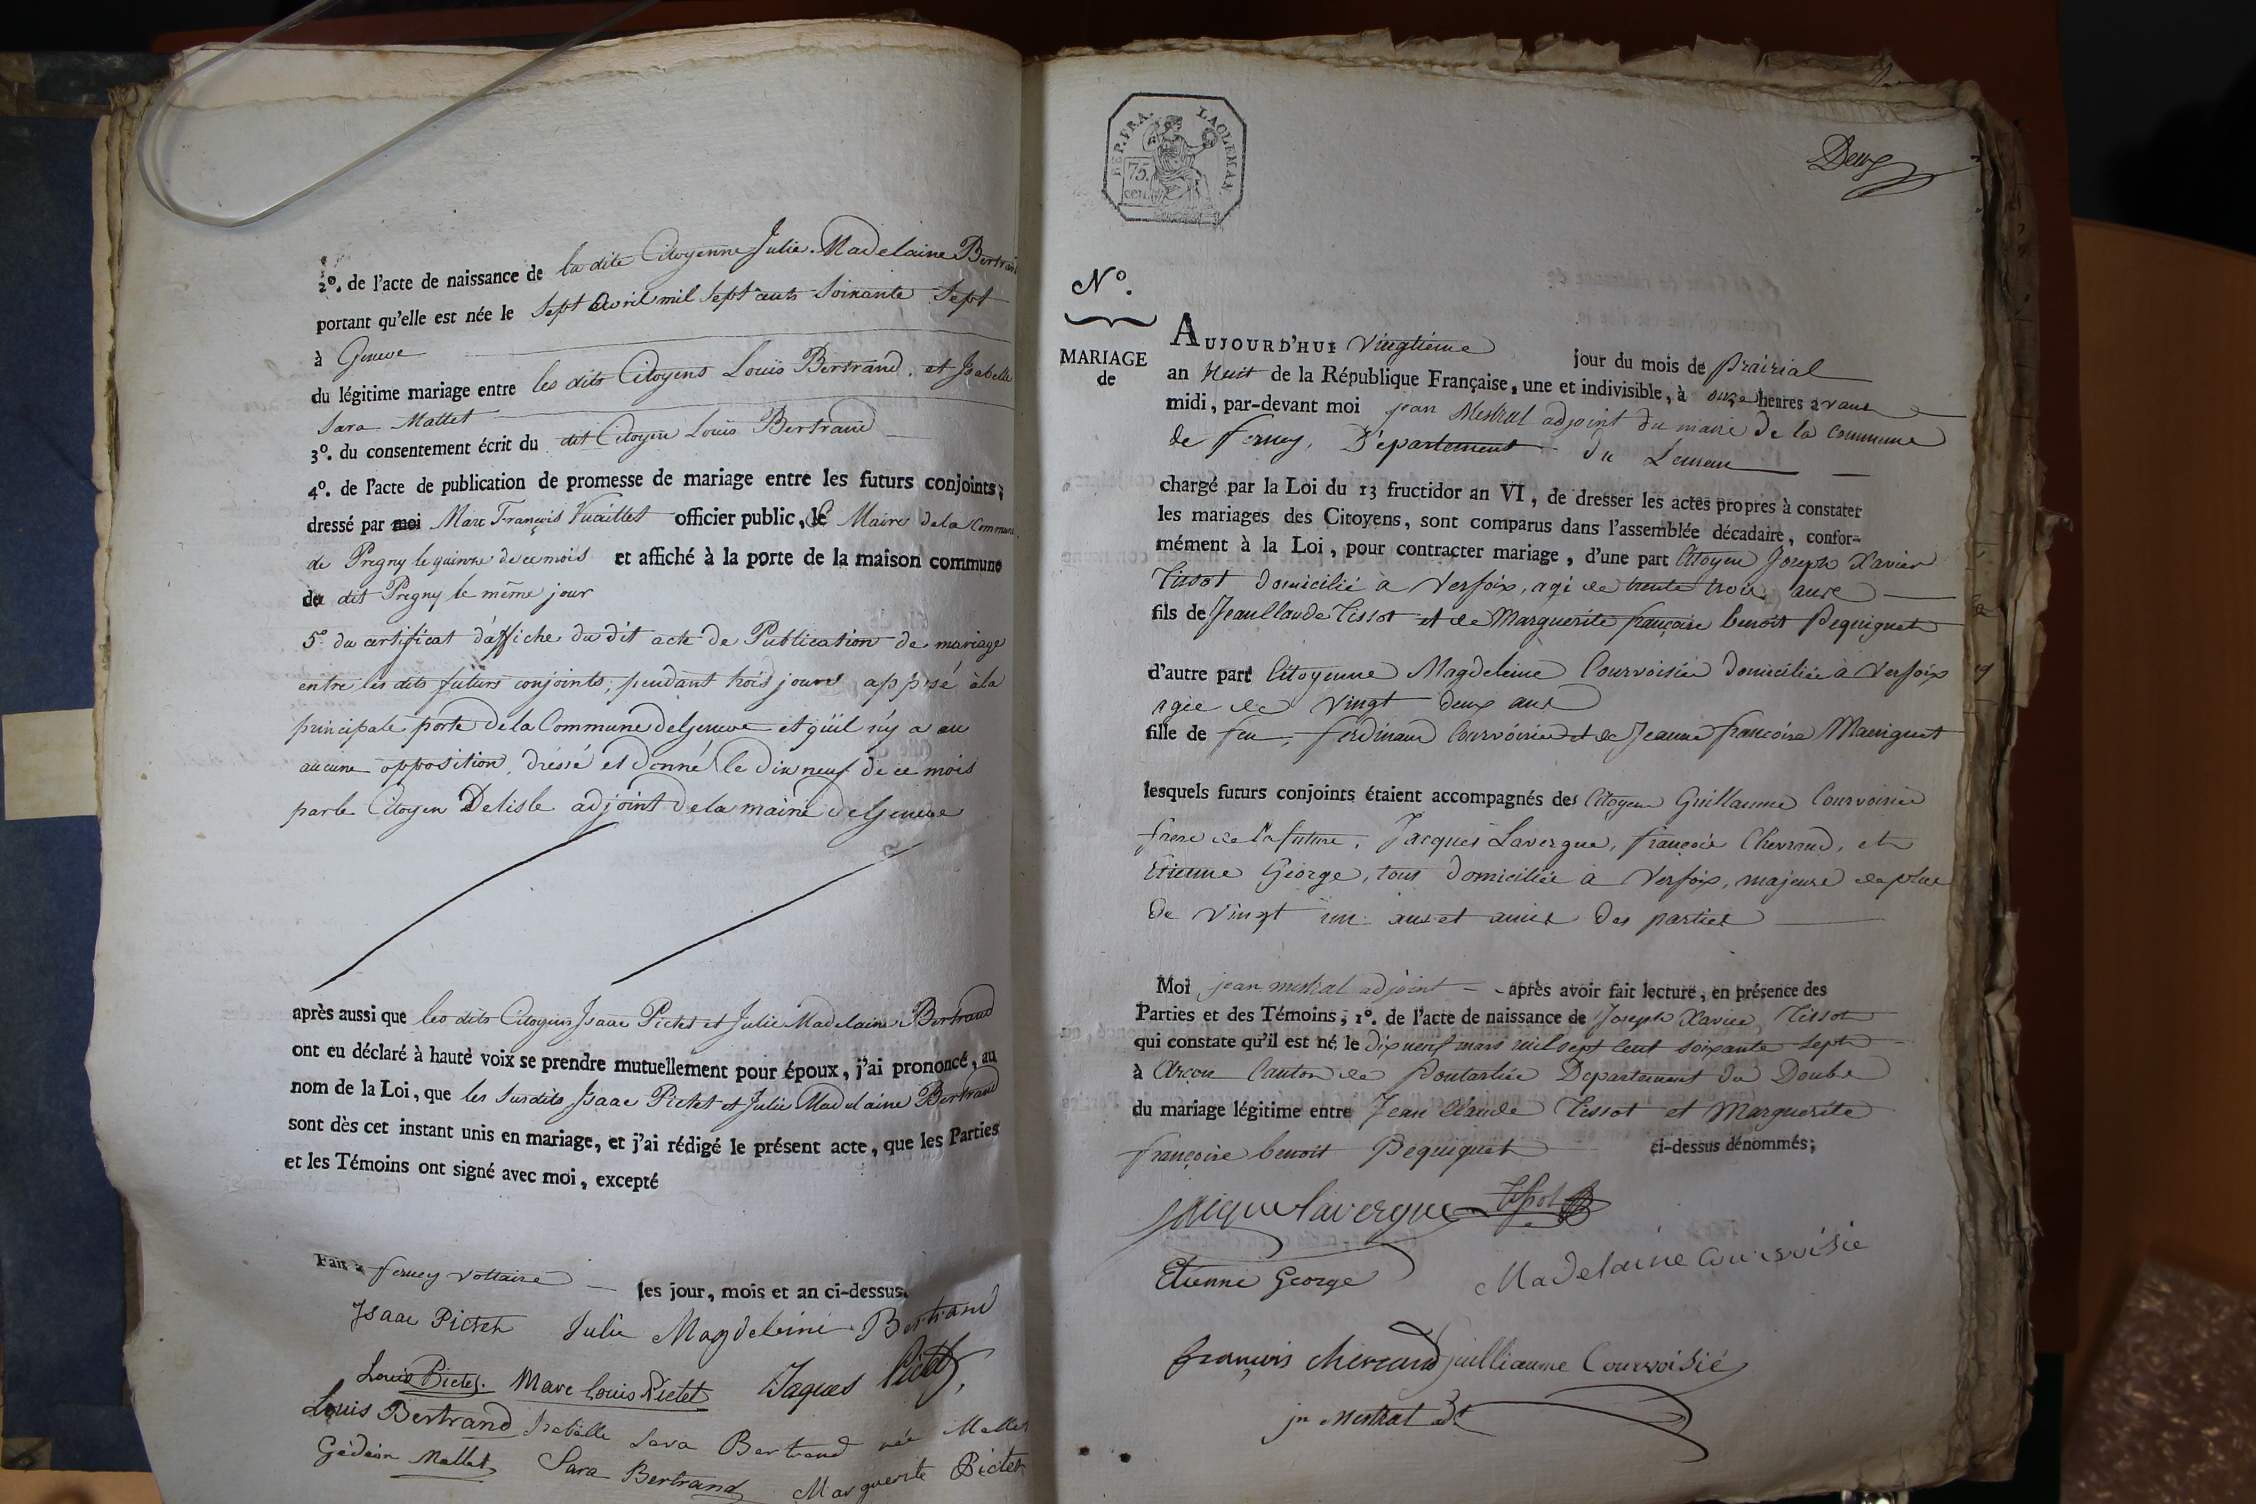 2º. de l'acte de naissance de la dite Citoyenne Julie Madelaine Bertrand
portant qu'elle est née le Sept avril mil sept cents soixante sept
à Geneve
du légitime mariage entre les dits Citoyens Louis Bertrand, et Isabelle
Sara Mallet
3º. du consentement écrit du dit Citoyen Louis Bertrand
4º. de l'acte de publication de promesse de mariage entre les futurs conjoints;
dressé par moi Marc François Vuaillet officier public, le Maire de la Commune
de Pregny le quinze de ce mois et affiché à la porte de la maison commune
du dit Pregny le même jour
5º du certificat d'affiche du dit acte de Publication de mariage
entre les dits futurs conjoints, pendant trois jours apposé à la
principale porte de la Commune de Geneve et qu'il n'y a eu
aucune opposition, dressé et donné le dix neuf de ce mois
par le Citoyen Delisle adjoint de la mairie de Geneve
après aussi que les dits Citoyens Isaac Pictet et Julie Madelaine Bertrand
ont eu déclaré à haute voix se prendre mutuellement pour époux, j'ai prononcé, au
nom de la Loi, que les susdits Isaac Pictet et Julie Madelaine Bertrand
sont dès cet instant unis en mariage, et j'ai rédigé le présent acte, que les Parties
et les Témoins ont signé avec moi, excepté
Fait à ferney voltaire les jour, mois et an ci-dessus.
Isaac Pictet Julie Magdeleine Bertrand
Louis Pictet. Marc Louis Pictet Jaques Pictet,
Louis Bertrand Isabelle Sara Bertrand née Mallet
Gédéon Mallet Sara Bertrand Marguerite Pictet
REP. FRA.
75.
cent.
Deux
Nº.
MARIAGE
de
AUJOURD'HUI vingtieme jour du mois de prairial
an huit de la République Française, une et indivisible, à onze heures avant
midi, par-devant moi jean Mestral adjoint du maire de la commune
de ferney, Département du Leman
chargé par la Loi du 13 fructidor an VI, de dresser les actes propres à constater
les mariages des Citoyens, sont comparus dans l'assemblée décadaire, confor-
mément à la Loi, pour contracter mariage, d'une part Citoyen Joseph Xavier
Tissot domicilié à Versoix, agé de trente trois ans
fils de Jean Claude Tissot et de Marguerite françoise benoit Pequignet
d'autre part Citoyenne Magdeleine Courvoisier domiciliée à Versoix
agée de vingt deux ans
fille de feu, ferdinand Courvoisier et de Jeanne françoise
lesquels futurs conjoints étaient accompagnés des Citoyens Guillaume Courvoisier
frere de la future, Jacques Lavergne, françois Chevrand, et
Etienne George, tous domiciliés à Versoix, majeurs de plus
de vingt un ans et amis des parties
Moi jean mestral adjoint après avoir fait lecture, en présence des
Parties et des Témoins, 1º. de l'acte de naissance de Joseph Xavier Tissot
qui constate qu'il est né le dix neuf mars mil sept cent soixante sept
à Arçon Canton de Pontarlier Departement du Doubs
du mariage légitime entre Jean Claude Tissot et Marguerite
françoise benoit Pequignet ci-dessus dénommés;
Jacque lavergne Tissot
Etienne George Madelaine Courvoisié
françois chevrand guilliaume Courvoisié
jn Mestral adt